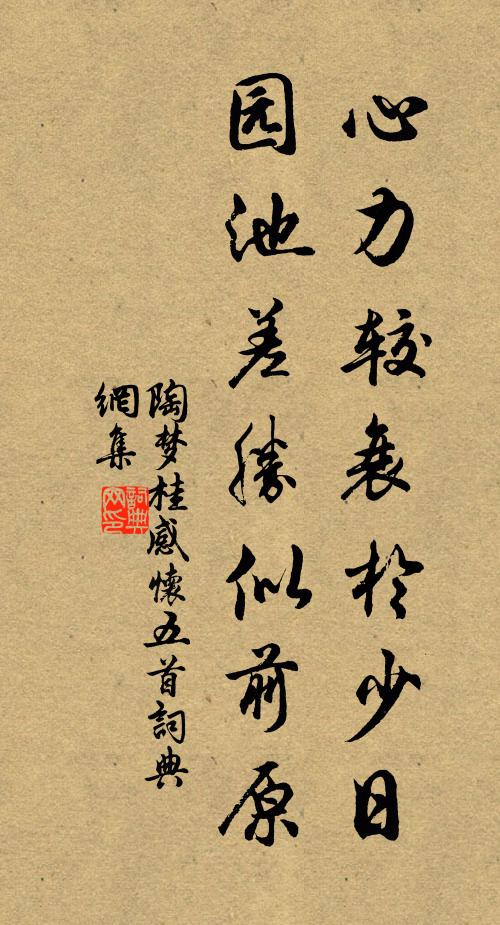 心力较衰於少日
园池差勝似前原
陶梦桂感懷五首詞典
網集
詞典
网印